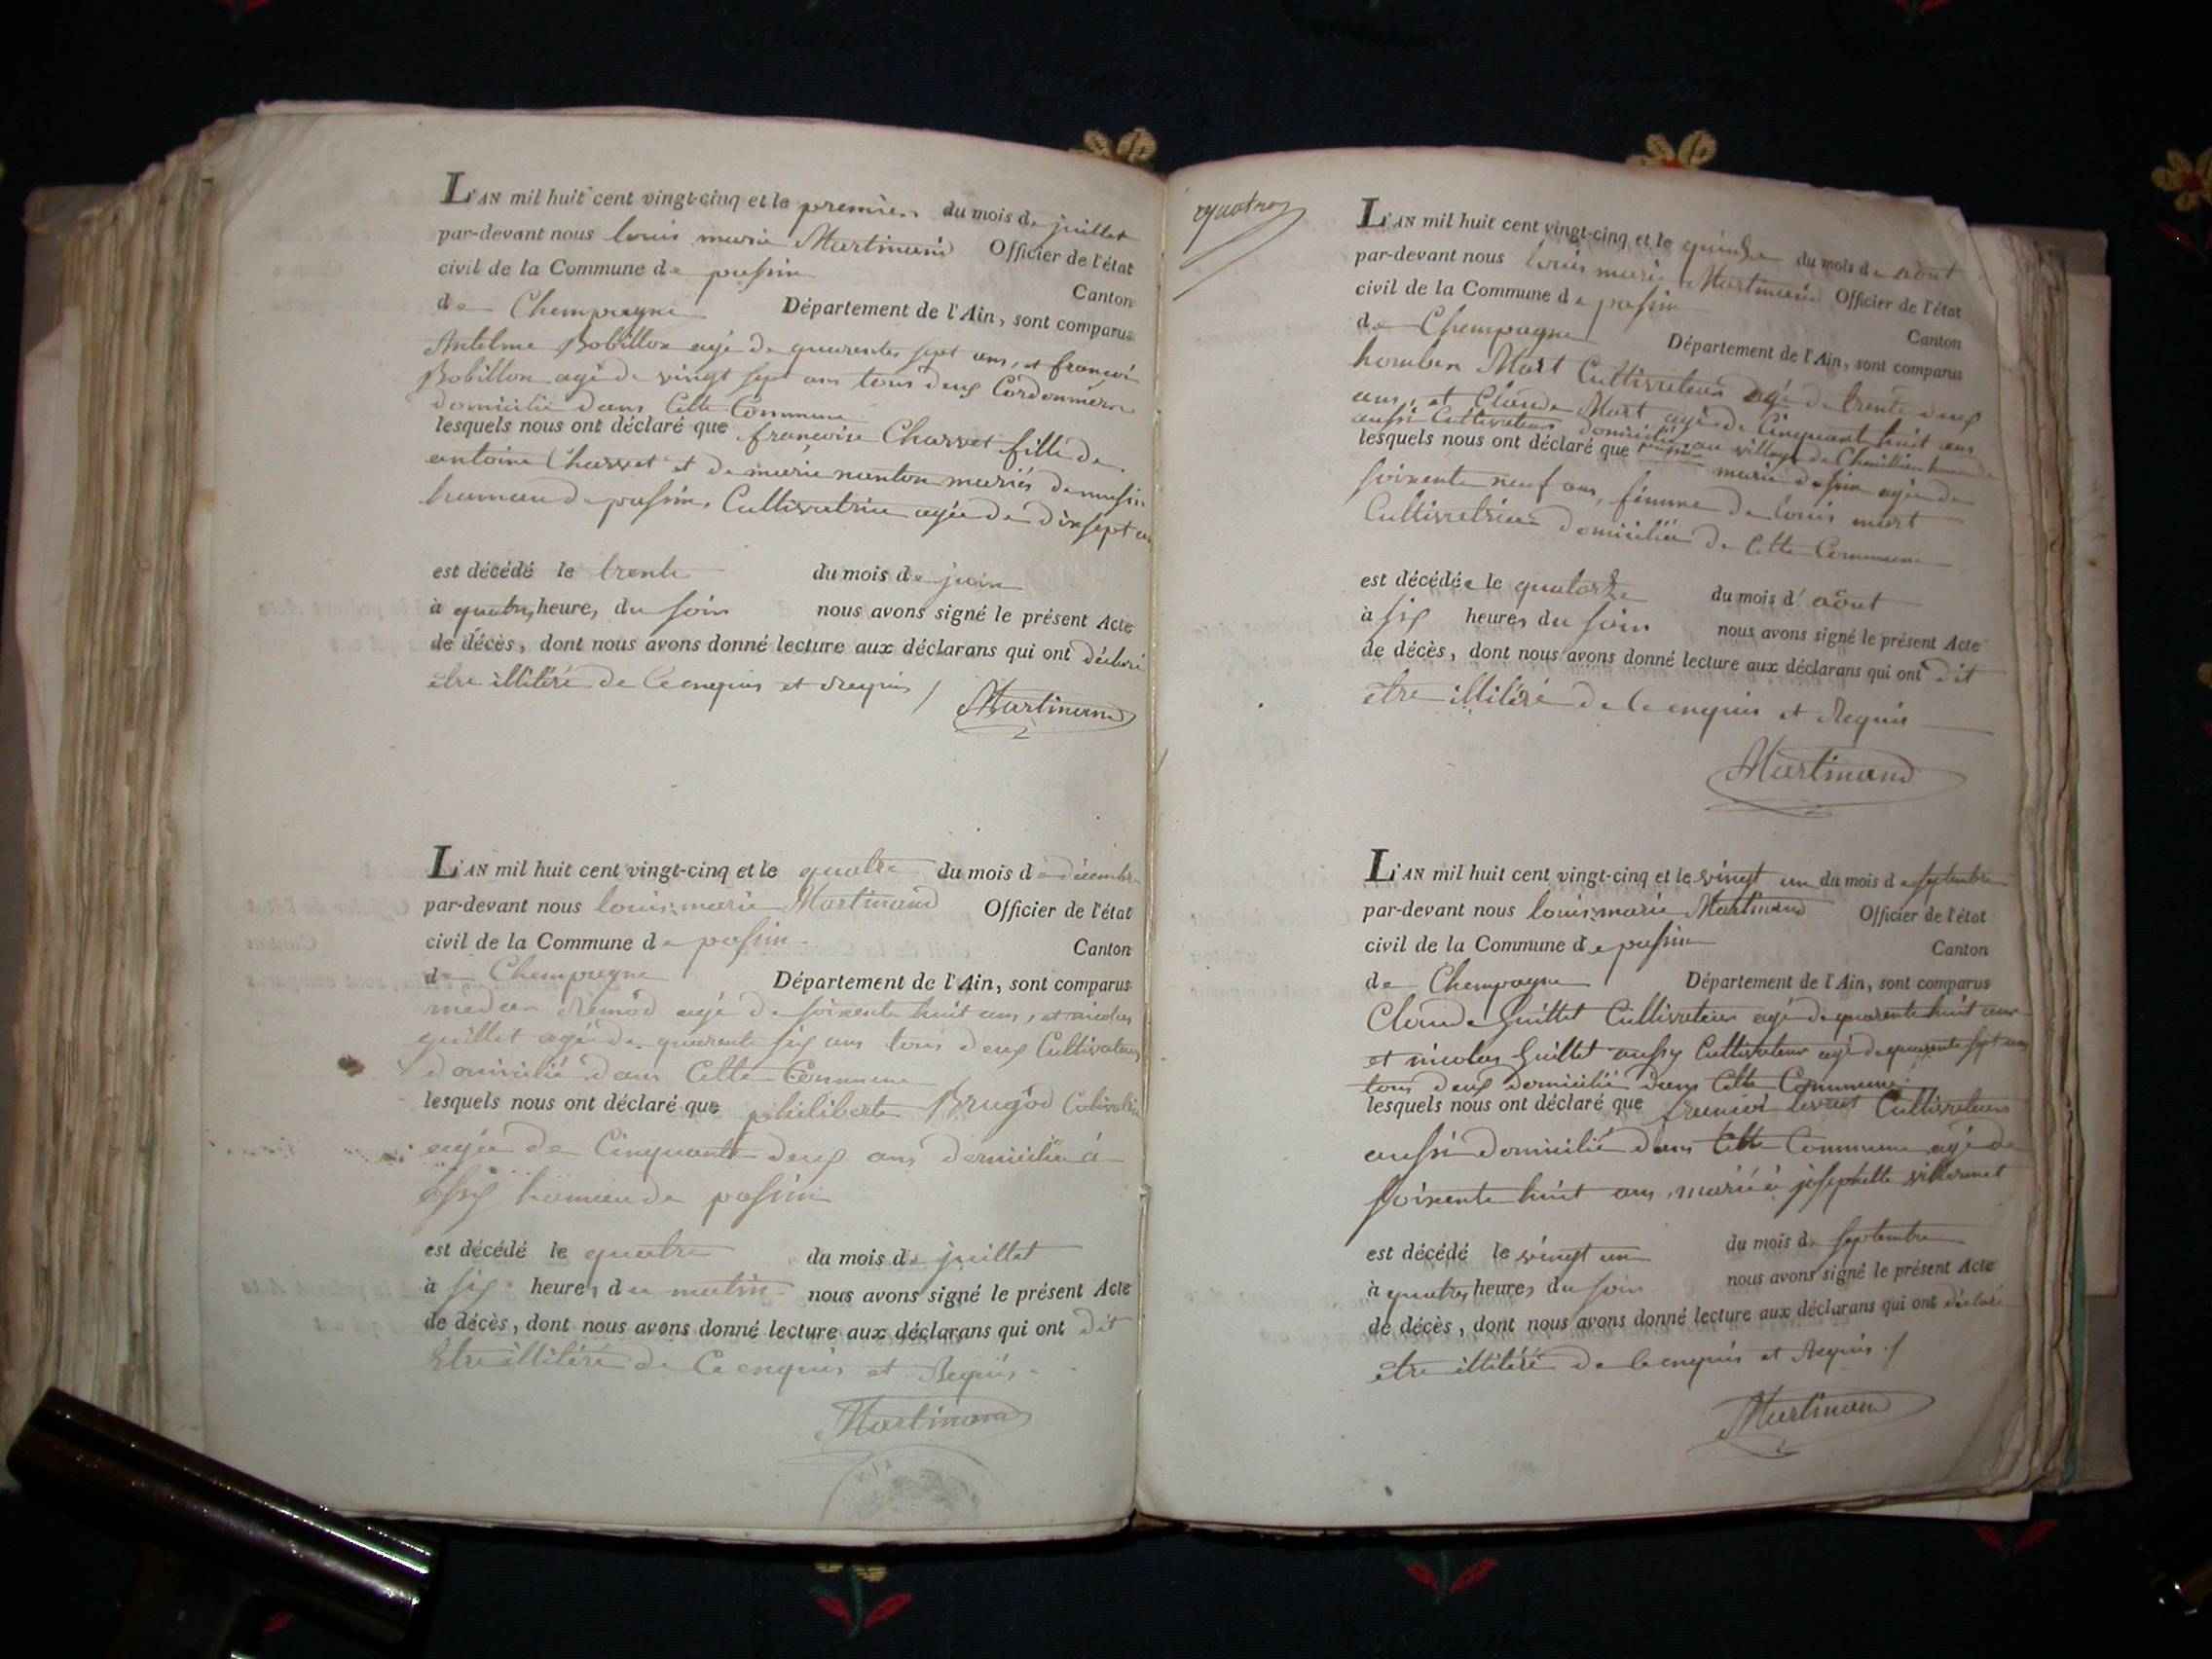 L'AN mil huit cent vingt-cinq et le premier du mois de juillet
par-devant nous louis marie Martinand Officier de l'état
civil de la Commune de passin Canton
de Chempagne Département de l'Ain, sont comparus
Antelme Bobillon agé de quarente sept ans, et francois
Bobillon agé de vingt sept ans tous deux Cordonniers
domicilié dans Cette Commune
lesquels nous ont déclaré que francoise Charvet fille de
antoine Charvet et de marie nanton mariés de
hameau de passin, Cultivatrice agée de dix sept an
est décédé le trente du mois de juin
à quatre heures du soir nous avons signé le présent Acte
de décès, dont nous avons donné lecture aux déclarans qui ont déclaré
etre illitéré de Ce enquis et Requis
Martinand
L'AN mil huit cent vingt-cinq et le quatre du mois de décembre
par-devant nous louis marie Martinand Officier de l'état
civil de la Commune de passin Canton
de Chempagne Département de l'Ain, sont comparus
agé de soixente huit ans, et nicolas
guillet agé de quarente six ans tous deux Cultivateurs
domicilié dans Cette Commune
lesquels nous ont déclaré que philiberte Brugod
agée de Cinquante deux ans domicilié à
hameau de passin
est décédé le quatre du mois de juillet
à six heures du matin nous avons signé le présent Acte
de décès, dont nous avons donné lecture aux déclarans qui ont dit
Etre illitéré de Ce enquis et Requis.
Martinand
L'AN mil huit cent vingt-cinq et le quinze du mois de aout
par-devant nous louis marie Martinand Officier de l'état
civil de la Commune de passin Canton
de Chempagne Département de l'Ain, sont comparus
Mart Cultivateur agé de trente deux
ans, et Claude Mart agé de Cinquante huit ans
aussi Cultivateur domicilié au village de
lesquels nous ont déclaré que marie agée de
soixente neuf ans, femme de louis mart
Cultivatrice domiciliée de Cette Commune
est décédée le quatorze du mois d'aout
à six heures du soir nous avons signé le présent Acte
de décès, dont nous avons donné lecture aux déclarans qui ont dit
etre illitéré de Ce enquis et Requis
Martinand
L'AN mil huit cent vingt-cinq et le vingt un du mois de septembre
par-devant nous louis marie Martinand Officier de l'état
civil de la Commune de passin Canton
de Chempagne Département de l'Ain, sont comparus
Claude Guillet Cultivateur agé de quarente huit ans
et nicolas Guillet aussy Cultivateur agé de quarente sept ans
tous deux domicilié dans Cette Commune
lesquels nous ont déclaré que Cultivateur
aussi domicilié dans Cette Commune agé de
soixente huit ans, marié à josephette villermet
est décédé le vingt un du mois de septembre
à quatre heures du soir nous avons signé le présent Acte
de décès, dont nous avons donné lecture aux déclarans qui ont déclaré
etre illitéré de Ce enquis et Requis
Martinand